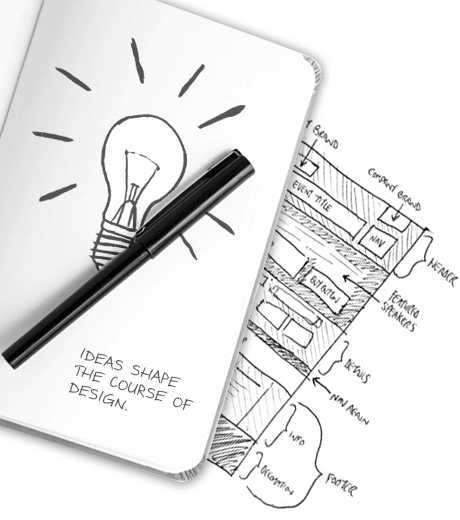 IDEAS SHAPE
THE COURSE OF
DESIGN.
BRAND
COMPANY BRAND
EVENT TITLE
NAV
HEADER
FEATURED
SPEAKERS
DETAILS
NAV AGAIN
INFO
DECORATION
FOOTER